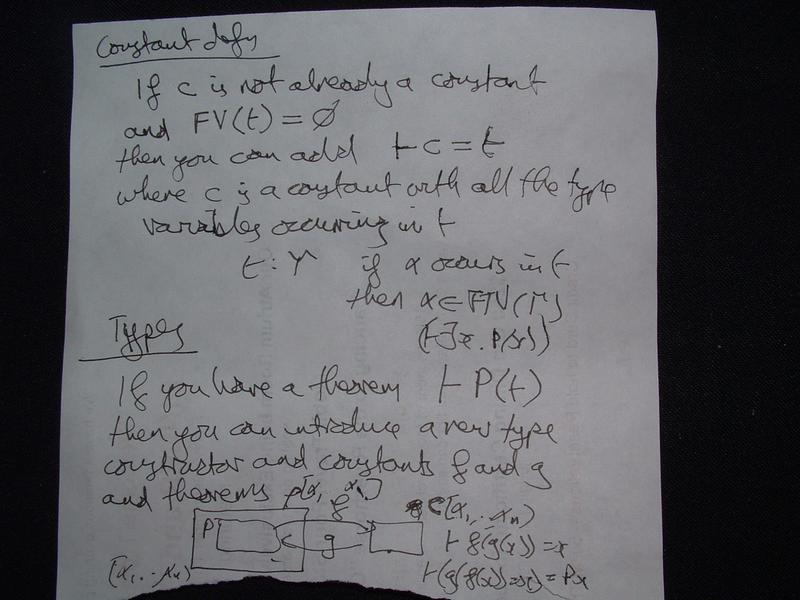 Constant defns
If c is not already a constant
and FV(t) = ∅
then you can add ⊢ c = t
where c is a constant with all the type
variables occurring in t
t : γ if α occurs in t
then α ∈ FTV(Γ)
Types
(⊢∃x. P(x))
If you have a theorem ⊢ P(t)
then you can introduce a new type
constructor and constants f and g
and theorems
P f g
C[α₁...αₙ)
[α₁...αₙ)
⊢ f(g(x)) = x
⊢(g(f(x))=x) = Px